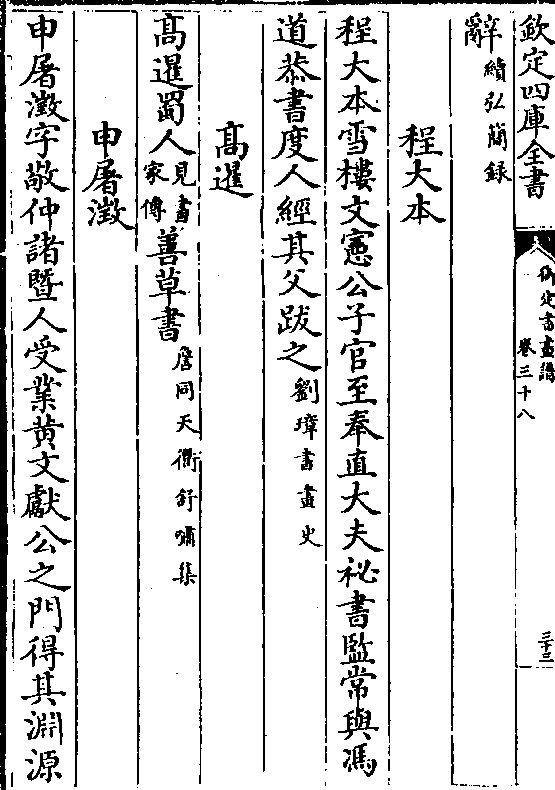 欽定四庫全書
御定書畫譜
卷三十八
三十三
辭續弘簡録
程大本
程大本雪樓文憲公子官至奉直大夫祕書監常與馮
道恭書度人經其父跋之劉璋書畫史
高暹
高暹蜀人見書家傳善草書詹同天衢舒嘯集
申屠澂
申屠澂字敬仲諸暨人受業黄文獻公之門得其淵源